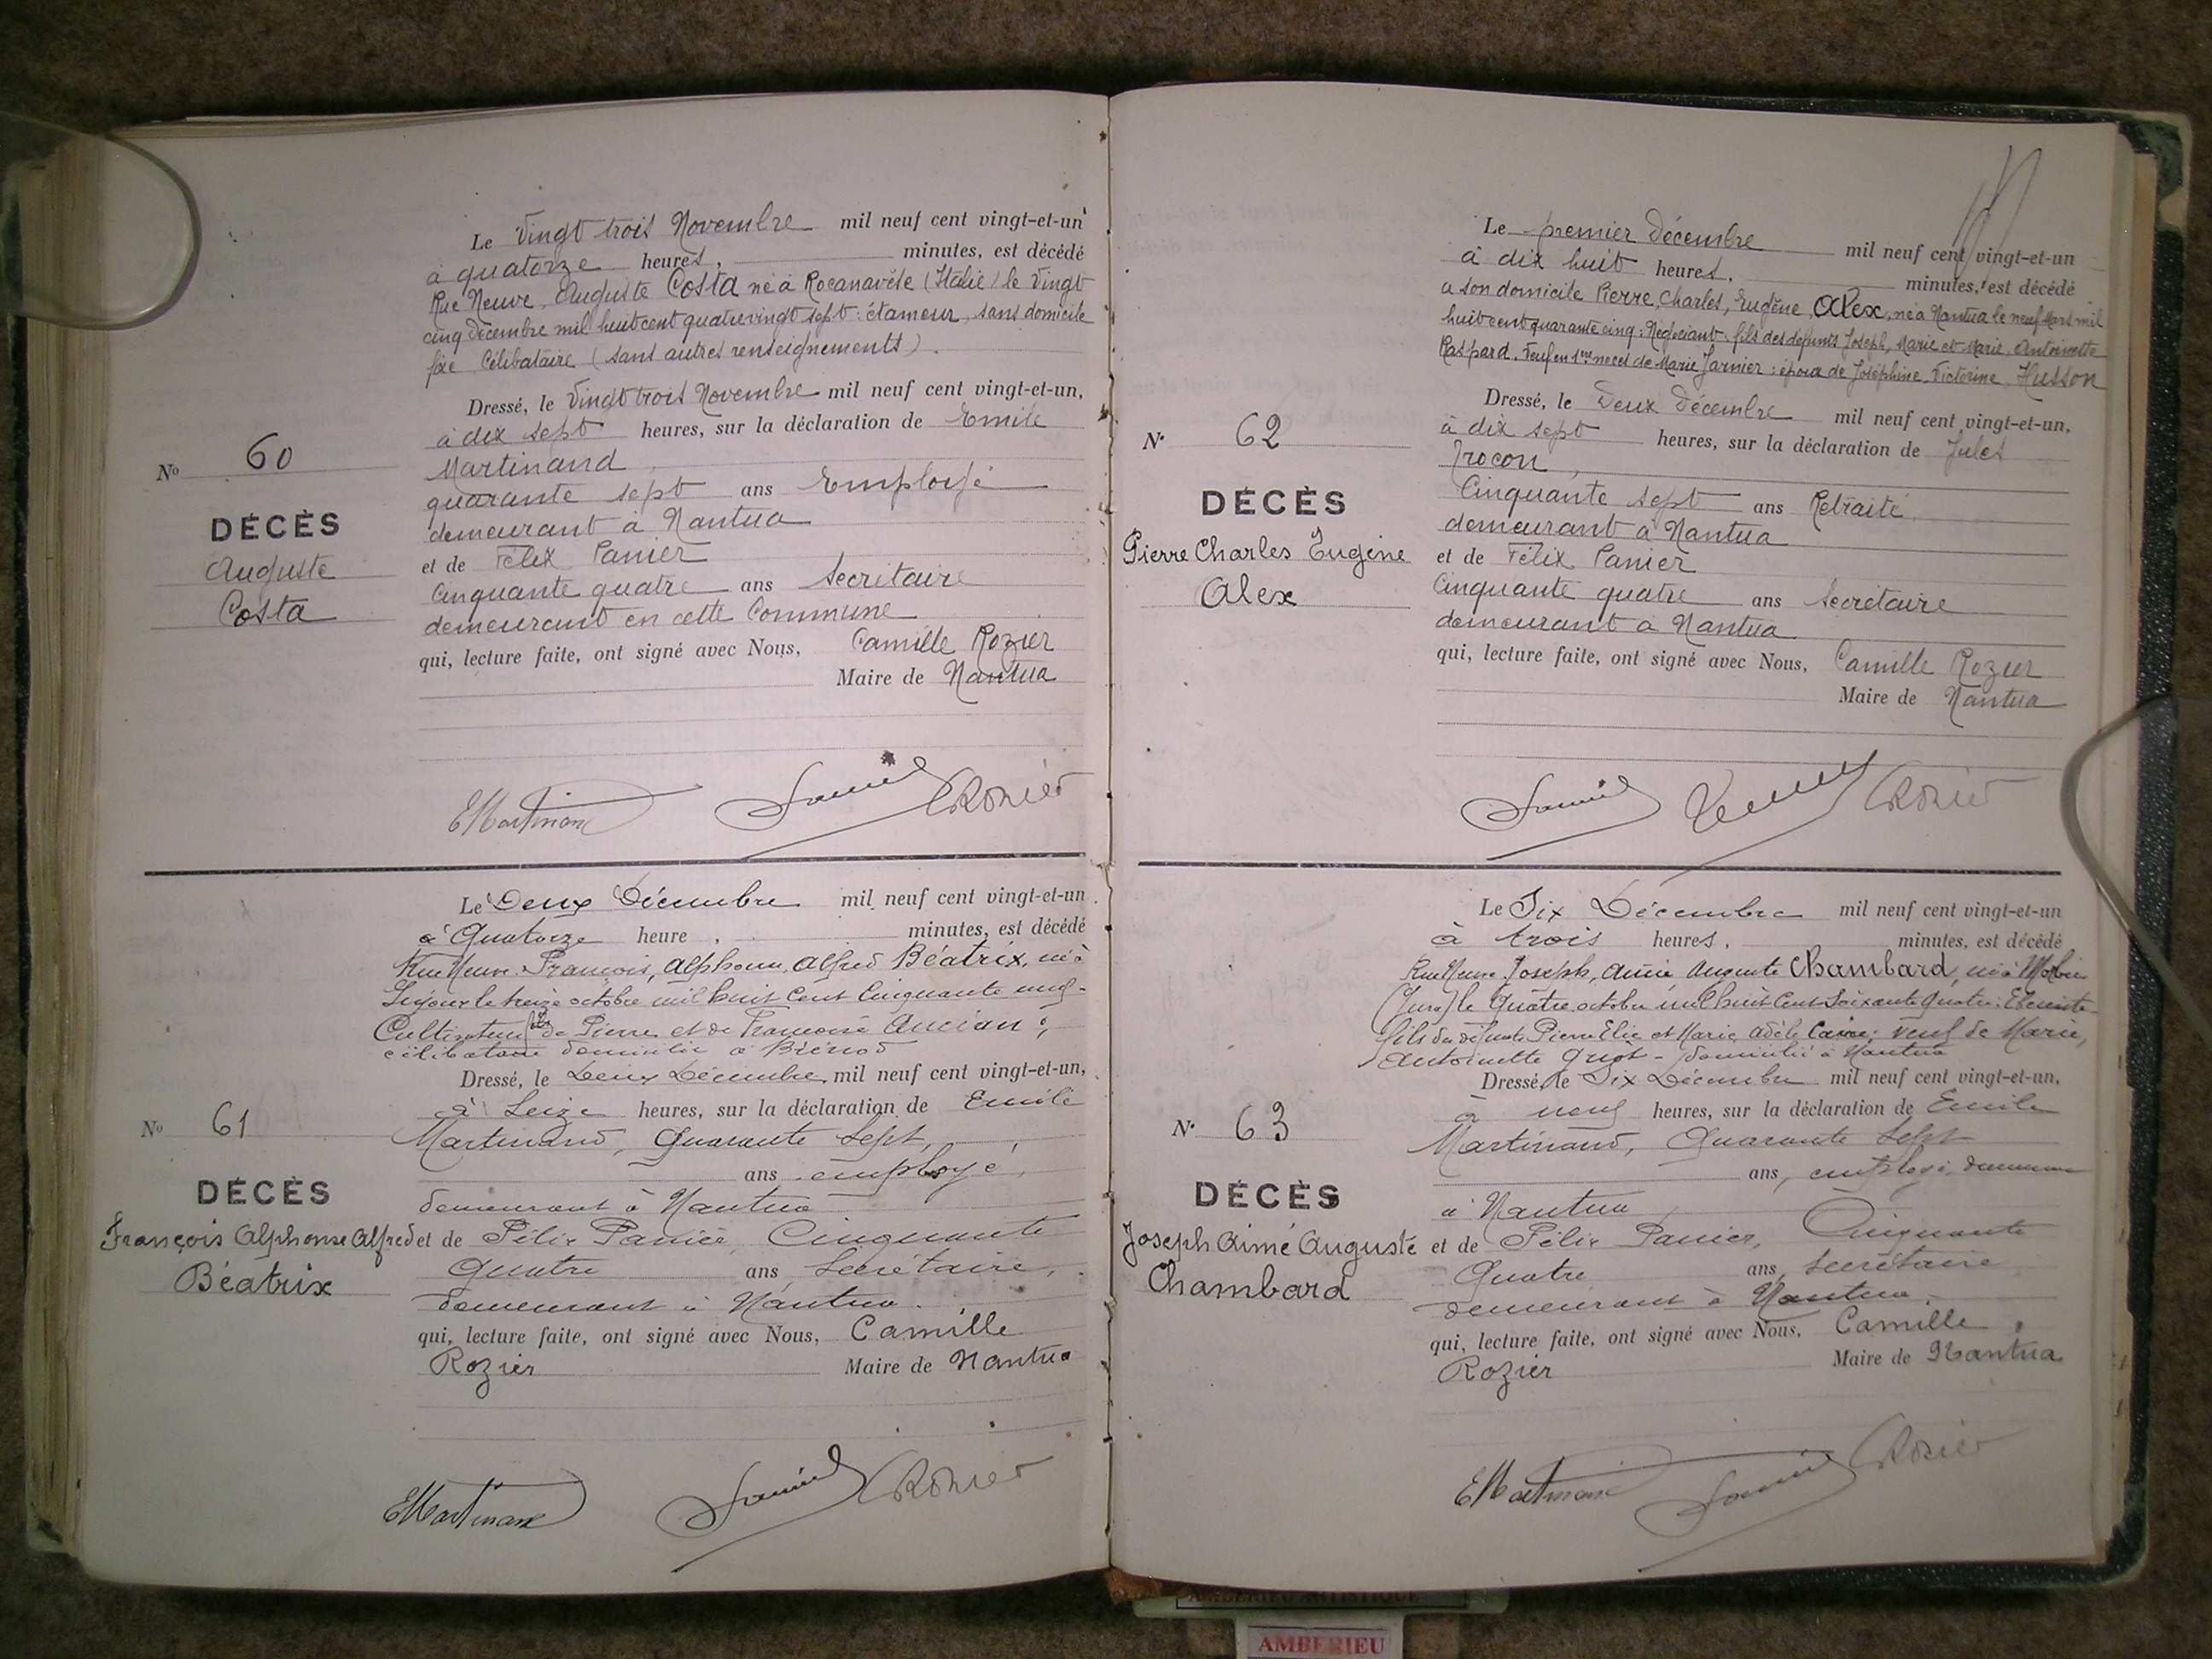 Le Vingt trois Novembre mil neuf cent vingt-et-un
à quatorze heures, minutes, est décédé
Rue Neuve, Auguste Costa né à Rocanavèse (Italie) le Vingt
cinq décembre mil huit cent quatre vingt sept : étameur, sans domicile
fixe Célibataire (sans autres renseignements).
Dressé, le Vingt trois Novembre mil neuf cent vingt-et-un,
à dix sept heures, sur la déclaration de Emile
Martinand
quarante sept ans Employé
demeurant à Nantua
et de Félix Panier
Cinquante quatre ans Secrétaire
demeurant en cette Commune
qui, lecture faite, ont signé avec Nous, Camille Rozier
Maire de Nantua
No 60
DÉCÈS
Auguste
Costa
EMartinand Rozier
Le Deux Décembre mil neuf cent vingt-et-un
à Quatorze heure, minutes, est décédé
Rue Neuve François, Alphonse, Alfred Béatrix, né à
le treize octobre mil huit cent cinquante neuf
Cultivateur fils de Pierre et de Françoise Ancian ;
célibataire domicilié à Brénod
Dressé, le Deux Décembre mil neuf cent vingt-et-un,
à Seize heures, sur la déclaration de Emile
Martinand, Quarante Sept,
ans employé,
demeurant à Nantua
et de Félix Panier, Cinquante
Quatre ans Secrétaire,
demeurant à Nantua.
qui, lecture faite, ont signé avec Nous, Camille
Rozier Maire de Nantua
No 61
DÉCÈS
François Alphonse Alfred
Béatrix
EMartinand Rozier
Le premier Décembre mil neuf cent vingt-et-un
à dix huit heures, minutes, est décédé
à son domicile Pierre, Charles, Eugène, Alex, né à Nantua le neuf Mars mil
huit cent quarante cinq : Négociant, fils des défunts Joseph, Marie et Marie, Antoinette
Raspard. Veuf en 1res noces de Marie Jarnier : époux de Joséphine Victorine Husson
Dressé, le Deux Décembre mil neuf cent vingt-et-un,
à dix sept heures, sur la déclaration de Jules
Trocon,
Cinquante sept ans Retraité
demeurant à Nantua
et de Félix Panier
Cinquante quatre ans Secrétaire
demeurant à Nantua
qui, lecture faite, ont signé avec Nous, Camille Rozier
Maire de Nantua
No 62
DÉCÈS
Pierre Charles Eugène
Alex
Rozier
Le Six Décembre mil neuf cent vingt-et-un
à trois heures, minutes, est décédé
Rue Neuve Joseph, Aimé Auguste Chambard, né à
(Jura) le Quatre octobre mil huit cent soixante quatre :
fils des défunts Pierre Elie et Marie Adèle ; veuf de Marie,
Antoinette - domicilié à Nantua
Dressé, le Six Décembre mil neuf cent vingt-et-un,
à neuf heures, sur la déclaration de Emile
Martinand, Quarante Sept
ans, employé, demeurant
à Nantua
et de Félix Panier, Cinquante
Quatre ans, Secrétaire
demeurant à Nantua,
qui, lecture faite, ont signé avec Nous, Camille
Rozier Maire de Nantua
No 63
DÉCÈS
Joseph Aimé Auguste
Chambard
EMartinand Rozier
AMBERIEU ARTISTIQUE
AMBERIEU